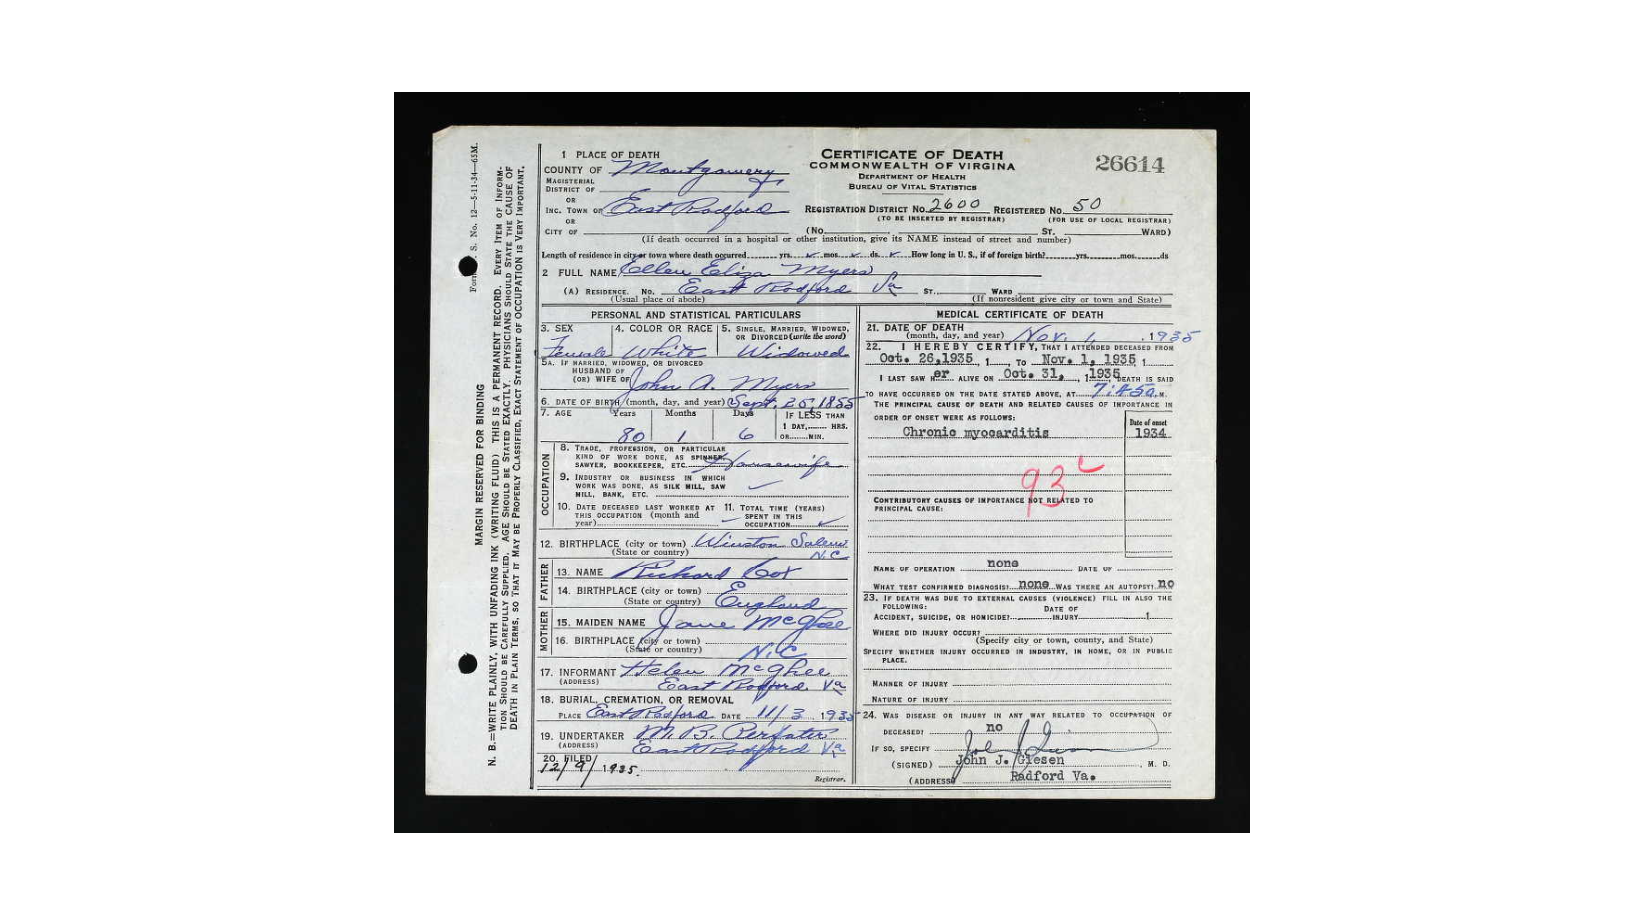 MARGIN RESERVED FOR BINDING
N. B.—WRITE PLAINLY, WITH UNFADING INK (WRITING FLUID) THIS IS A PERMANENT RECORD. EVERY ITEM OF INFORM-
TION SHOULD BE CAREFULLY SUPPLIED. AGE SHOULD BE STATED EXACTLY. PHYSICIANS SHOULD STATE THE CAUSE OF
DEATH IN PLAIN TERMS, SO THAT IT MAY BE PROPERLY CLASSIFIED. EXACT STATEMENT OF OCCUPATION IS VERY IMPORTANT.
S. No. 12—5-11-34—65M.
CERTIFICATE OF DEATH
COMMONWEALTH OF VIRGINIA
DEPARTMENT OF HEALTH
BUREAU OF VITAL STATISTICS
26614
1 PLACE OF DEATH
COUNTY OF Montgomery
MAGISTERIAL
DISTRICT OF
OR
INC. TOWN OF East Radford
OR
CITY OF
REGISTRATION DISTRICT No. 2600 REGISTERED No. 50
(TO BE INSERTED BY REGISTRAR) (FOR USE OF LOCAL REGISTRAR)
(No. ST. WARD)
(If death occurred in a hospital or other institution, give its NAME instead of street and number)
Length of residence in city or town where death occurred yrs. mos. ds. How long in U. S., if of foreign birth? yrs. mos. ds
2 FULL NAME Ellen Eliza Myers
(A) RESIDENCE. No. East Radford Va ST. WARD
(Usual place of abode) (If nonresident give city or town and State)
PERSONAL AND STATISTICAL PARTICULARS
3. SEX 4. COLOR OR RACE 5. SINGLE, MARRIED, WIDOWED,
OR DIVORCED (write the word)
Female White Widowed
5A. IF MARRIED, WIDOWED, OR DIVORCED
HUSBAND OF
(OR) WIFE OF John A. Myers
6. DATE OF BIRTH (month, day, and year) Sept. 25, 1855
7. AGE Years Months Days IF LESS THAN
1 DAY, HRS.
OR MIN.
80 1 6
OCCUPATION
8. TRADE, PROFESSION, OR PARTICULAR
KIND OF WORK DONE, AS SPINNER,
SAWYER, BOOKKEEPER, ETC. Housewife
9. INDUSTRY OR BUSINESS IN WHICH
WORK WAS DONE, AS SILK MILL, SAW
MILL, BANK, ETC.
10. DATE DECEASED LAST WORKED AT 11. TOTAL TIME (YEARS)
THIS OCCUPATION (month and SPENT IN THIS
year) OCCUPATION
12. BIRTHPLACE (city or town) Winston Salem
(State or country) N.C
FATHER
13. NAME Richard Cox
14. BIRTHPLACE (city or town)
(State or country) England
MOTHER
15. MAIDEN NAME Jane McGhee
16. BIRTHPLACE (city or town)
(State or country) N.C
17. INFORMANT Helen McGhee
(ADDRESS) East Radford. Va
18. BURIAL, CREMATION, OR REMOVAL
PLACE East Radford DATE 11/3 1935
19. UNDERTAKER M. B.
(ADDRESS) East Radford Va
20. FILED
12/9/1935
Registrar.
MEDICAL CERTIFICATE OF DEATH
21. DATE OF DEATH
(month, day, and year) Nov. 1, 1935
22. I HEREBY CERTIFY, THAT I ATTENDED DECEASED FROM
Oct. 26,1935, 1 TO Nov. 1, 1935, 1
I LAST SAW H er ALIVE ON Oct. 31, 1935, DEATH IS SAID
TO HAVE OCCURRED ON THE DATE STATED ABOVE, AT 7:45a. M.
THE PRINCIPAL CAUSE OF DEATH AND RELATED CAUSES OF IMPORTANCE IN
ORDER OF ONSET WERE AS FOLLOWS:
Date of onset
Chronic myocarditis 1934
93 c
CONTRIBUTORY CAUSES OF IMPORTANCE NOT RELATED TO
PRINCIPAL CAUSE:
NAME OF OPERATION none DATE OF
WHAT TEST CONFIRMED DIAGNOSIS? none WAS THERE AN AUTOPSY? no
23. IF DEATH WAS DUE TO EXTERNAL CAUSES (VIOLENCE) FILL IN ALSO THE
FOLLOWING: DATE OF
ACCIDENT, SUICIDE, OR HOMICIDE? INJURY 1
WHERE DID INJURY OCCUR?
(Specify city or town, county, and State)
SPECIFY WHETHER INJURY OCCURRED IN INDUSTRY, IN HOME, OR IN PUBLIC
PLACE.
MANNER OF INJURY
NATURE OF INJURY
24. WAS DISEASE OR INJURY IN ANY WAY RELATED TO OCCUPATION OF
DECEASED? no
IF SO, SPECIFY
(SIGNED) John J. Giesen, M. D.
(ADDRESS) Radford Va.